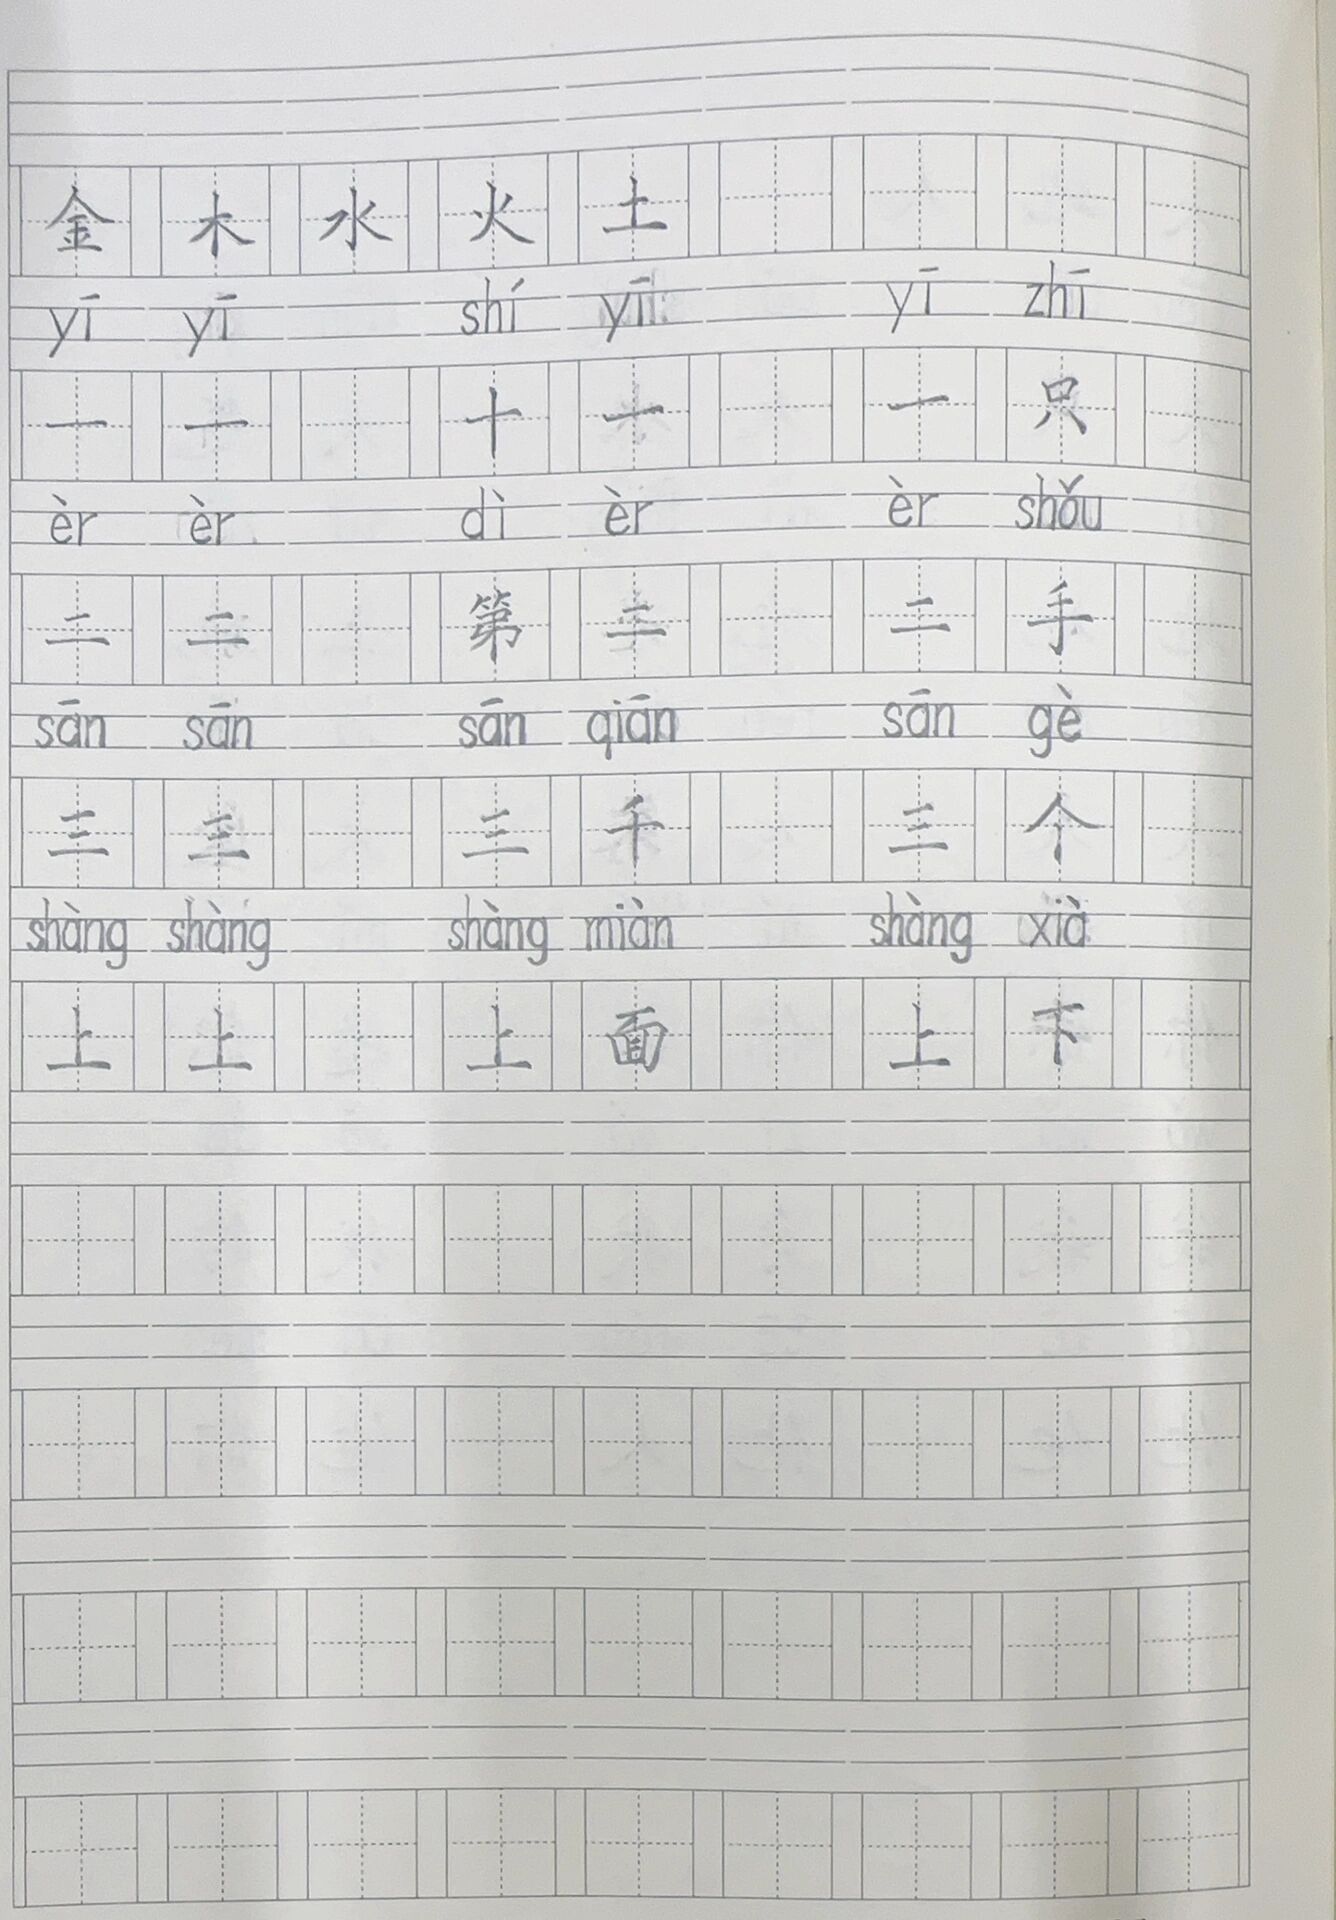 金 木 水 火 土
yī yī shí yī yī zhī
一 一 十 一 一 只
èr èr dì èr èr shǒu
二 二 第 二 二 手
sān sān sān qiān sān gè
三 三 三 千 三 个
shàng shàng shàng miàn shàng xià
上 上 上 面 上 下